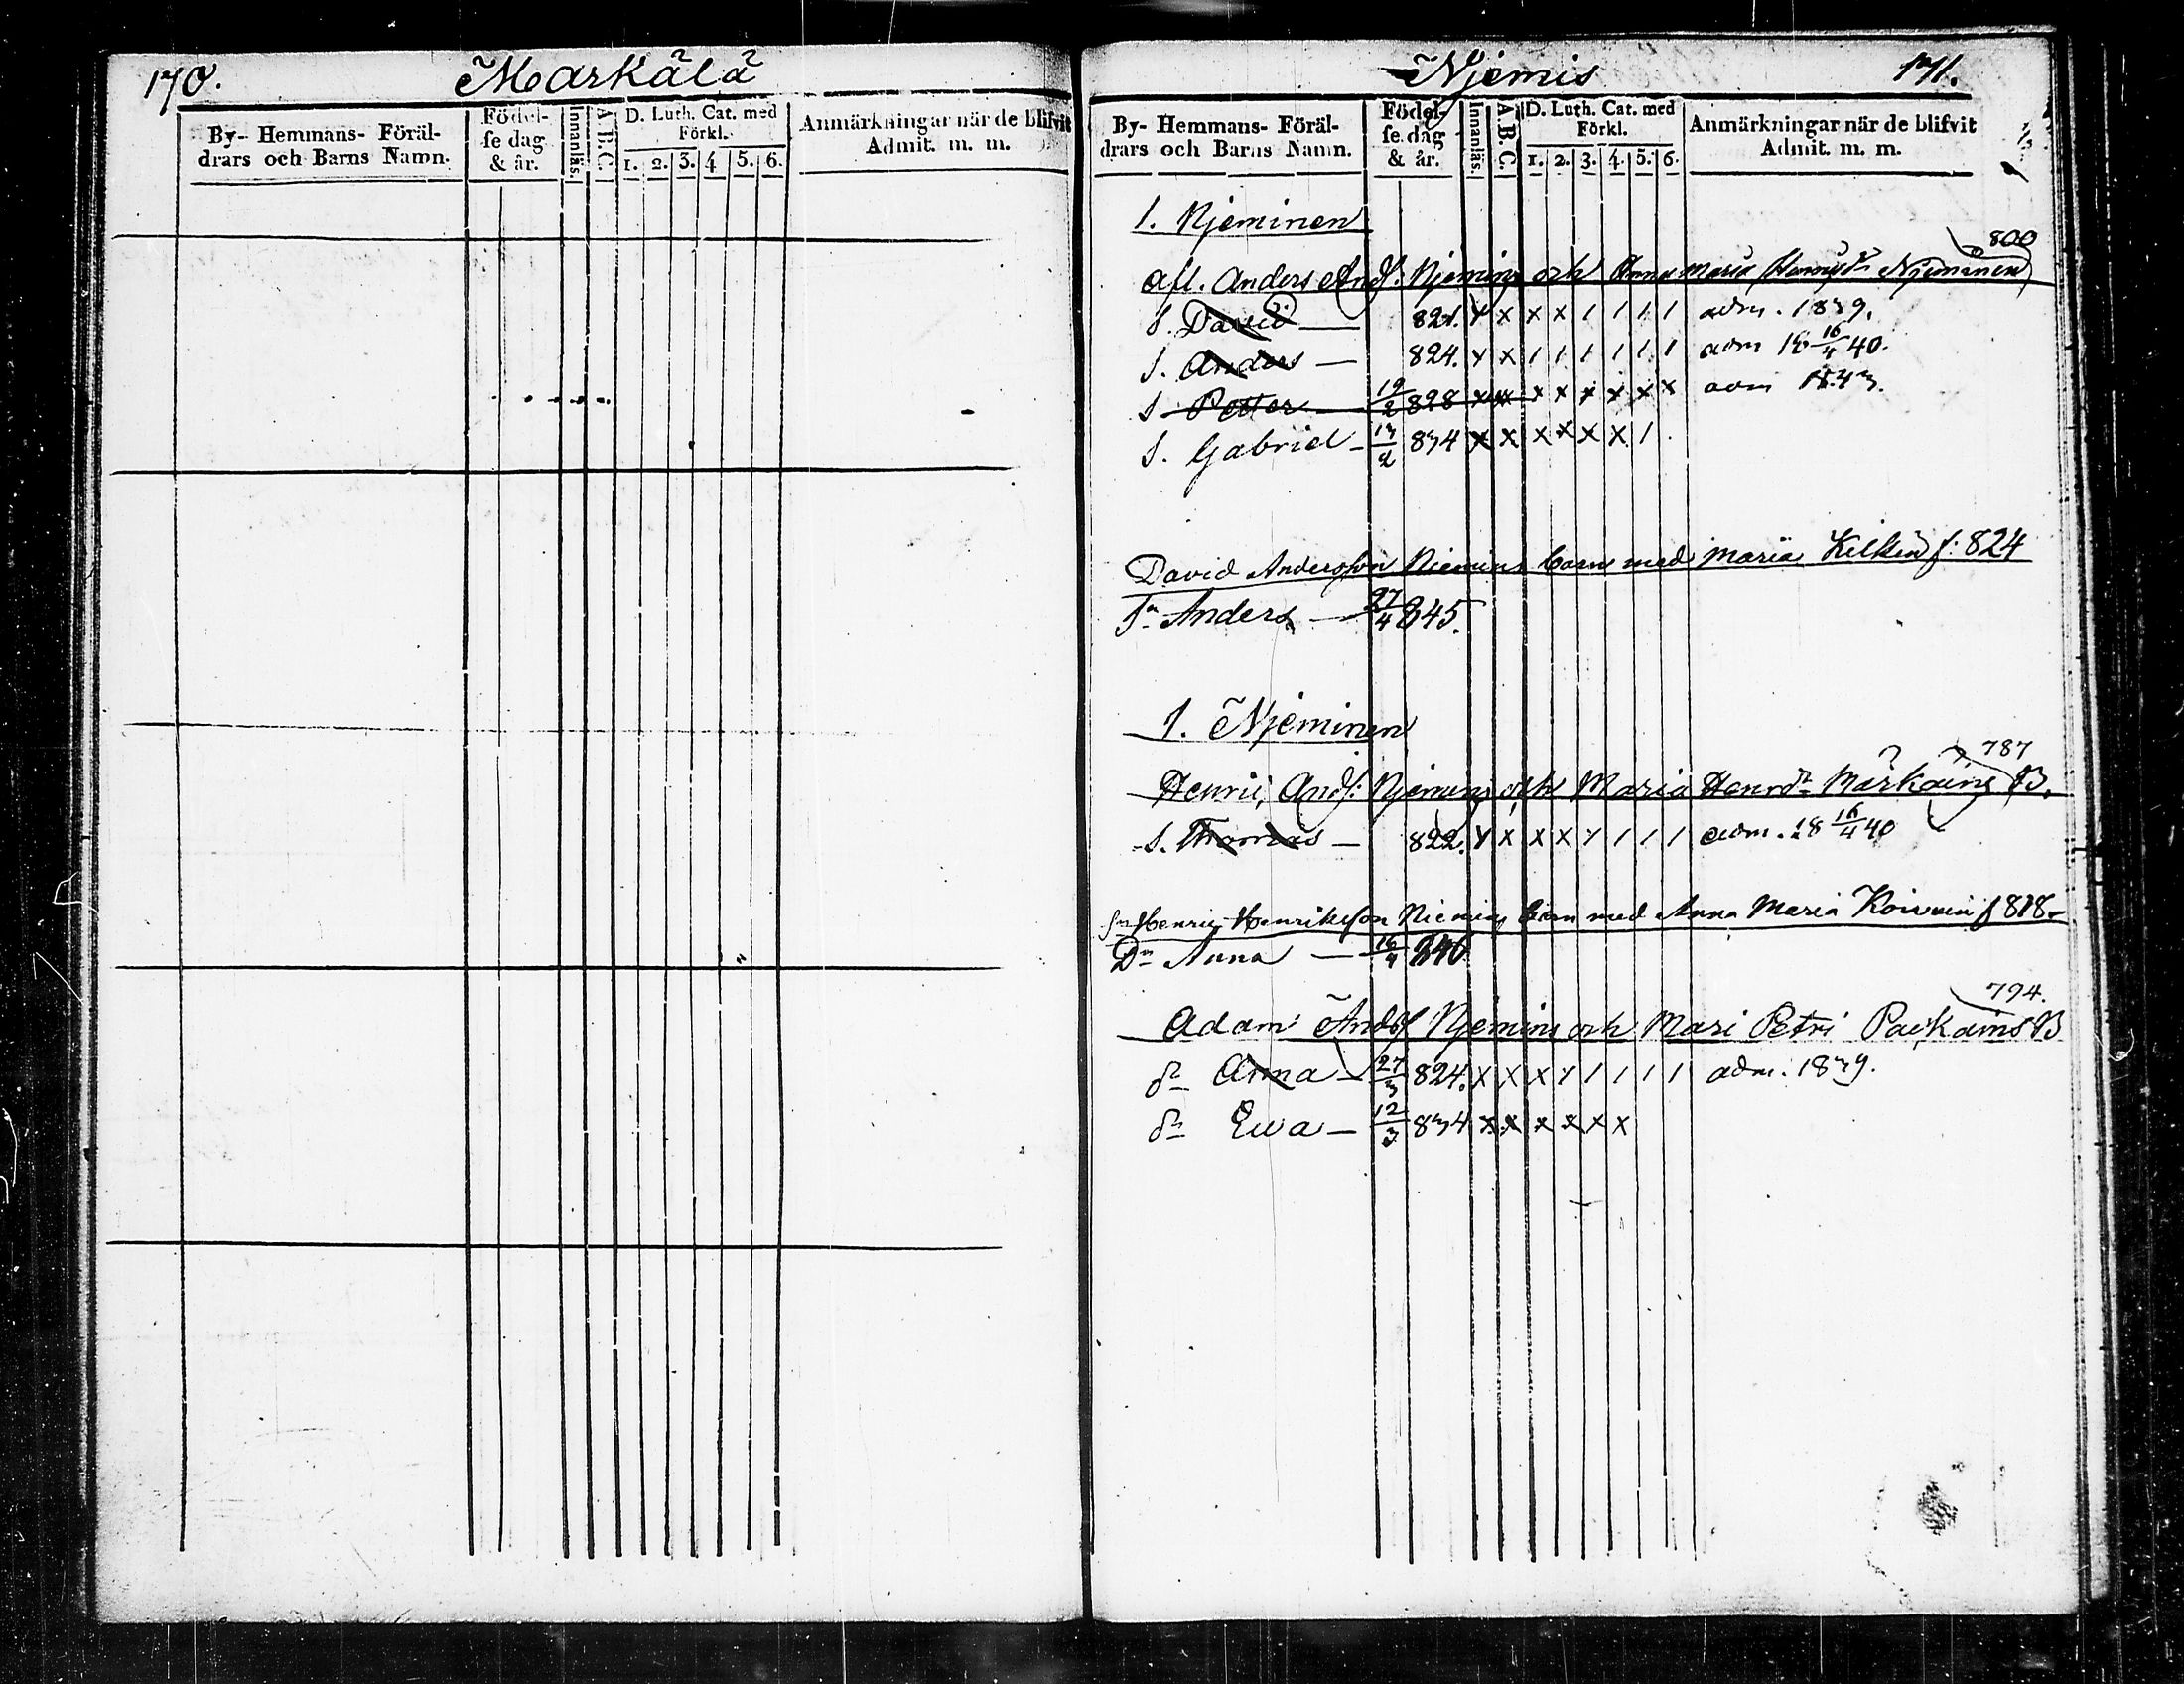 170. Markälä
By- Hemmans- Föräl-
drars och Barns Namn.
Födel-
se dag
& år.
Innanläs.
A B C.
D. Luth. Cat. med
Förkl.
1. 2. 3. 4 5. 6.
Anmärkningar när de blifvit
Admit. m. m.
Njemis 171.
By- Hemmans- Föräl-
drars och Barns Namn.
Födel-
se dag
& år.
Innanläs.
A B C.
D. Luth. Cat. med
Förkl.
1. 2. 3. 4. 5. 6.
Anmärkningar när de blifvit
Admit. m. m.
1. Njeminen
800
afl. Anders Andf: Njemins och Anna Maria Njeminen
S. David — 821. x x x x / / / / adm. 1839.
S. Anders — 824. x x / / / / / / adm 18 16/4 40.
S Petter — 19/2 828 x x x x x x x x adm 1843.
S. Gabriel — 13/2 834 x x x x x x /
David Andersson Niemins barn med Maria f: 824
Sn Anders — 27/4 845.
1. Njeminen
787
Henric Andf: Njemins och Maria Henrdr Markains B.
S. Thomas — 822. x x x x x / / / adm. 18 16/4 40
Sn Henric Henriksson Niemins barn med Anna Maria f 818
Dr Anna — 16/4 846
794.
Adam Andsf Njemins och Mari Petri Packains B
dr Anna — 27/3 824. x x x x / / / / adm. 1839.
dr Ewa — 12/3 834 x x x x x x